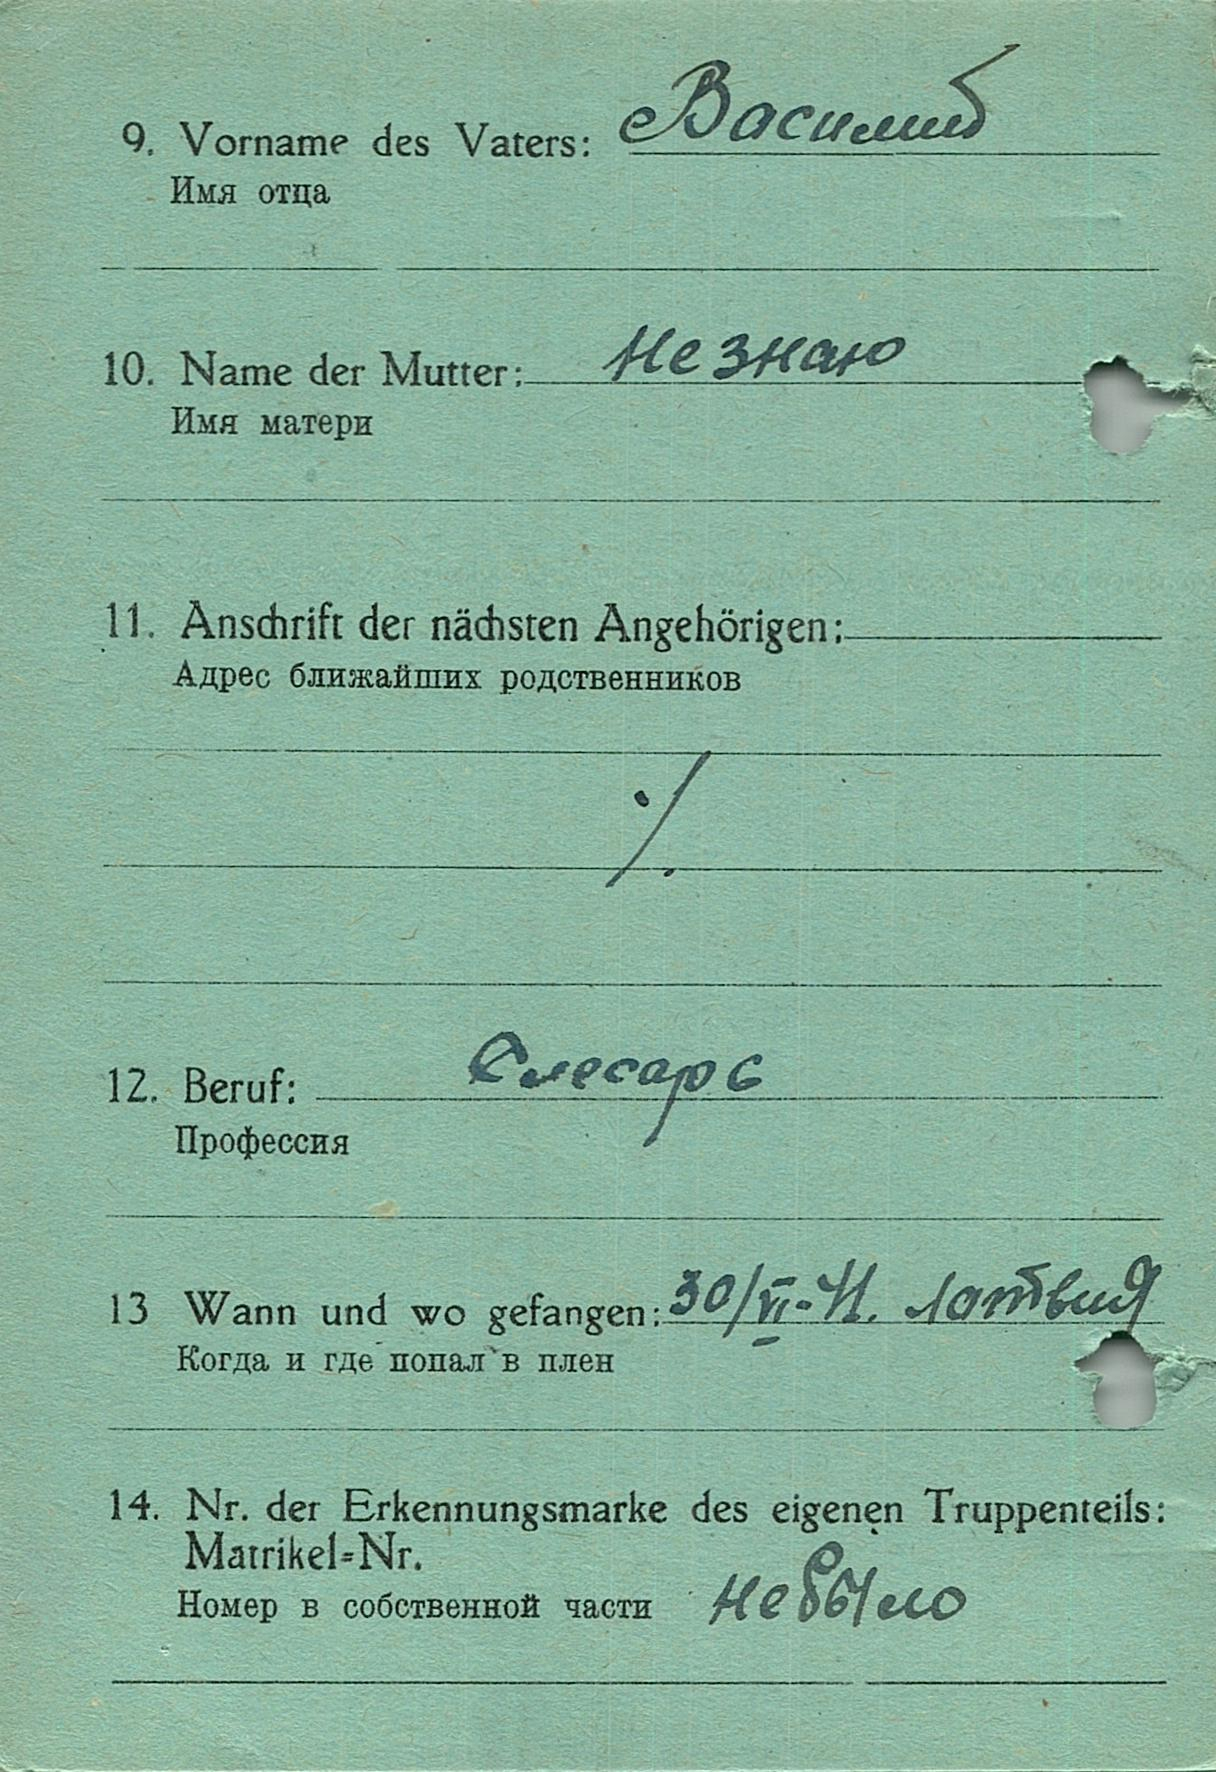 9. Vorname des Vaters: Василий
Имя отца
10. Name der Mutter: Не знаю
Имя матери
11. Anschrift der nächsten Angehörigen:
Адрес ближайших родственников
./.
12. Beruf: Слесарь
Профессия
13 Wann und wo gefangen: 30/VI-41. Латвия
Когда и где попал в плен
14. Nr. der Erkennungsmarke des eigenen Truppenteils:
Matrikel=Nr.
Номер в собственной части не было